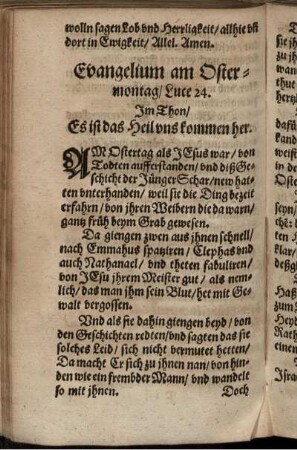 wolln sagen Lob vnd Herrligkeit / allhie vñ
dort in Ewigkeit / Allel. Amen.
Evangelium am Oster-
montag / Luce 24.
Im Thon /
Es ist das Heil vns kommen her.
AM Ostertag als JEsus war / von
Todten aufferstanden / vnd diß Ge-
schicht der Jünger Schar / new hat-
ten vnterhanden / weil sie die Ding bezeit
erfahrn / von jhren Weibern die da warn /
gantz früh beym Grab gewesen.
Da giengen zwen aus jhnen schnell /
nach Emmahus spatziren / Clephas vnd
auch Nathanael / vnd theten fabuliren /
von JEsu jhrem Meister gut / als nem-
lich / das man jhm sein Blut / het mit Ge-
walt vergossen.
Vnd als sie dahin giengen beyd / von
den Geschichten redten / vnd sagten das sie
solches Leid / sich nicht vermutet hetten /
Da macht Er sich zu jhnen nan / von hin-
den wie ein frembder Mann / vnd wandelt
so mit jhnen. Doch